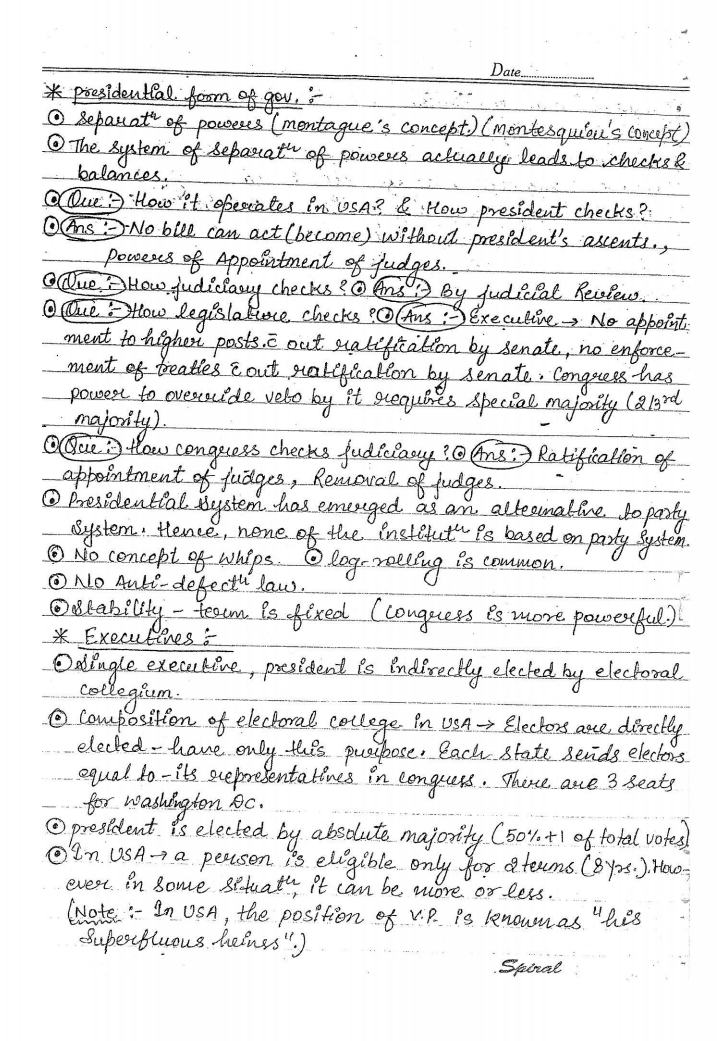 Date
* presidential form of gov. :-
⊙ separatⁿ of powers (montague's concept) (montesquieu's concept)
⊙ The system of separatⁿ of powers actually leads to checks &
balances.
⊙ Que :- How it operates in USA? & How president checks?
⊙ Ans :- No bill can act (become) without president's ascents.,
Powers of Appointment of judges.
⊙ Que :- How judiciary checks? ⊙ Ans :- By judicial Review.
⊙ Que :- How legislature checks? ⊙ Ans :- Executive → No appoint-
ment to higher posts c̄ out ratification by senate, no enforce-
ment of treaties c̄ out ratification by senate. Congress has
power to override veto by it requires special majority (2/3rd
majority).
⊙ Que :- How congress checks judiciary? ⊙ Ans :- Ratification of
appointment of judges, Removal of judges.
⊙ Presidential system has emerged as an alternative to party
system. Hence, none of the institutⁿ is based on party system.
⊙ No concept of whips. ⊙ log-rolling is common.
⊙ No Anti-defectⁿ law.
⊙ Stability - term is fixed (Congress is more powerful.)
* Executives :-
⊙ Single executive, president is indirectly elected by electoral
collegium.
⊙ Composition of electoral college in USA → Electors are directly
elected - have only this purpose. Each state sends electors
equal to - its representatives in congress. There are 3 seats
for washington DC.
⊙ president is elected by absolute majority (50%+1 of total votes)
⊙ In USA → a person is eligible only for 2 terms (8 yrs.). How-
ever in some situatⁿ, it can be more or less.
(Note :- In USA, the position of V.P. is known as "his
Superfluous heinss".)
Spiral